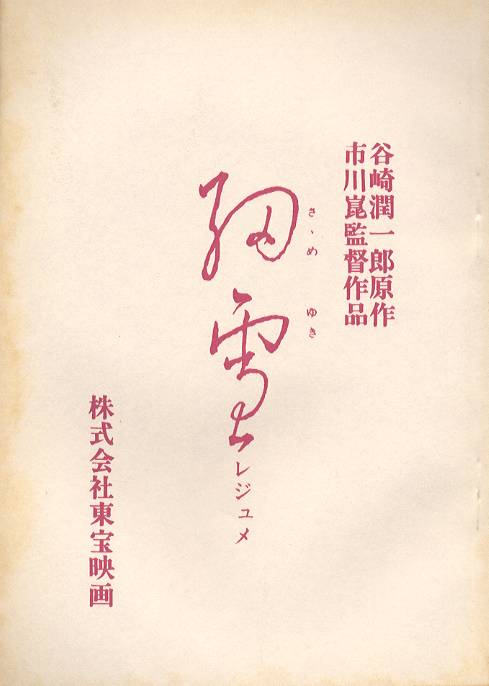 谷崎潤一郎原作
市川崑監督作品
細雪
さゝめゆき
レジュメ
株式会社東宝映画